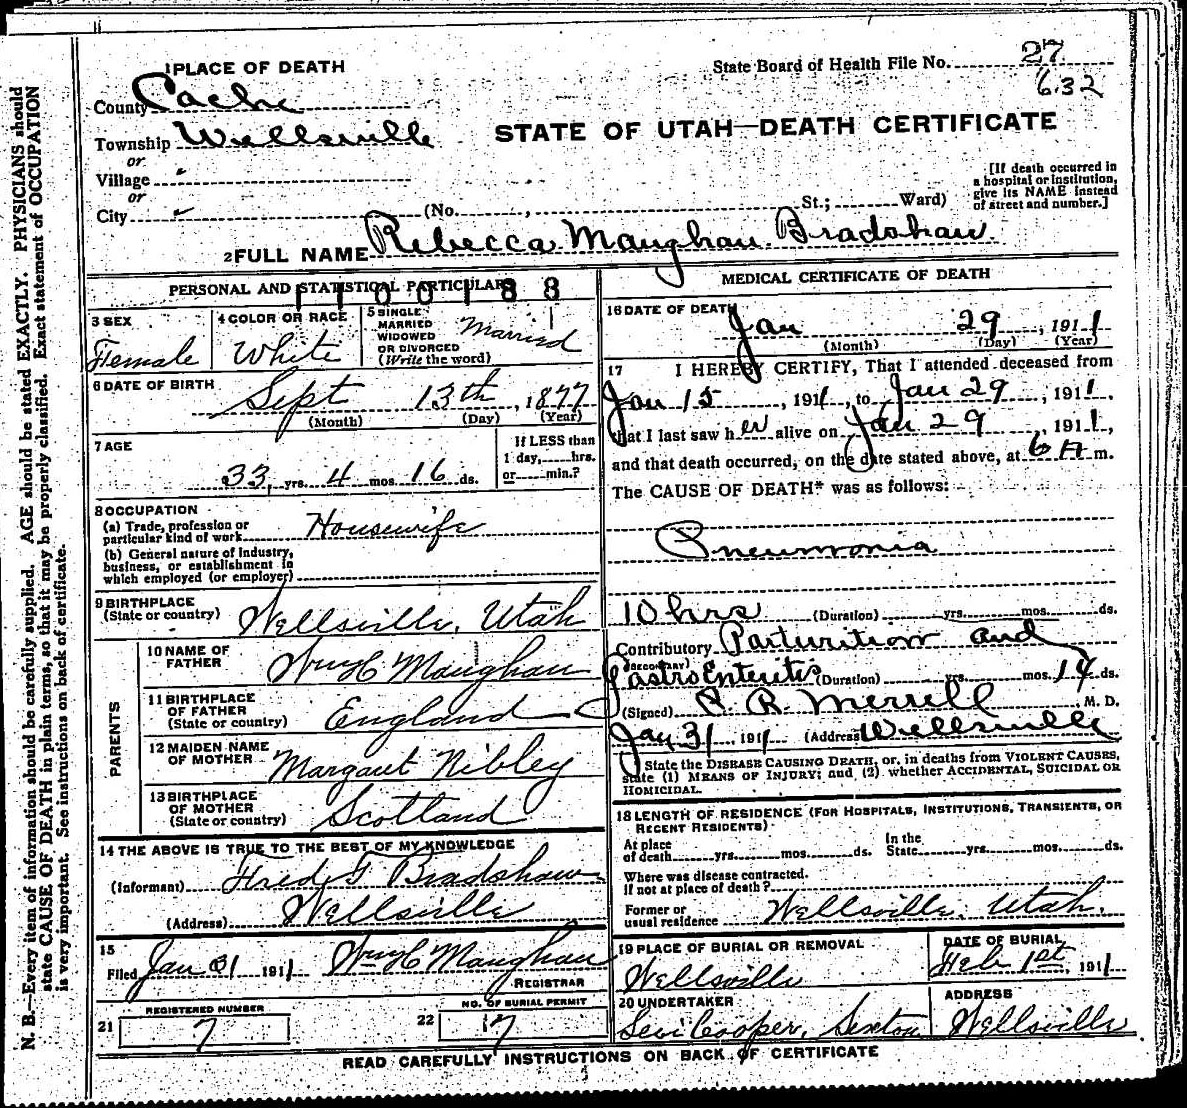 1 PLACE OF DEATH
State Board of Health File No. 27
632
County Cache
Township Wellsville
STATE OF UTAH—DEATH CERTIFICATE
or
Village
or
City (No. , St.; Ward)
[If death occurred in
a hospital or institution,
give its NAME instead
of street and number.]
2 FULL NAME Rebecca Maughan Bradshaw
PERSONAL AND STATISTICAL PARTICULARS
1100188
3 SEX
Female
4 COLOR OR RACE
White
5 SINGLE
MARRIED
WIDOWED
OR DIVORCED
(Write the word)
Married
6 DATE OF BIRTH
Sept 13th, 1877
(Month) (Day) (Year)
7 AGE
33 yrs. 4 mos. 16 ds.
If LESS than
1 day, hrs.
or min.?
8 OCCUPATION
(a) Trade, profession or
particular kind of work Housewife
(b) General nature of Industry,
business, or establishment in
which employed (or employer)
9 BIRTHPLACE
(State or country) Wellsville, Utah
PARENTS
10 NAME OF
FATHER Wm H Maughan
11 BIRTHPLACE
OF FATHER
(State or country) England
12 MAIDEN NAME
OF MOTHER Margaut Nibley
13 BIRTHPLACE
OF MOTHER
(State or country) Scotland
14 THE ABOVE IS TRUE TO THE BEST OF MY KNOWLEDGE
(Informant) Fred T Bradshaw
(Address) Wellsville
15
Filed Jan 31 1911 Wm H Maughan
REGISTRAR
REGISTERED NUMBER
21 7
NO. OF BURIAL PERMIT
22 17
MEDICAL CERTIFICATE OF DEATH
16 DATE OF DEATH
Jan 29, 1911
(Month) (Day) (Year)
17 I HEREBY CERTIFY, That I attended deceased from
Jan 15, 1911, to Jan 29, 1911,
that I last saw her alive on Jan 29, 1911,
and that death occurred, on the date stated above, at 6 A m.
The CAUSE OF DEATH* was as follows:
Pneumonia
10 hrs (Duration) yrs. mos. ds.
Contributory Parturition and
(SECONDARY)
Gastro Enteritis (Duration) yrs. mos. 14 ds.
(Signed) R. Merrell, M. D.
Jan 31 1911 (Address) Wellsville
State the DISEASE CAUSING DEATH, or, in deaths from VIOLENT CAUSES,
state (1) MEANS OF INJURY; and (2) whether ACCIDENTAL, SUICIDAL OR
HOMICIDAL.
18 LENGTH OF RESIDENCE (FOR HOSPITALS, INSTITUTIONS, TRANSIENTS, OR
RECENT RESIDENTS)
At place
of death yrs. mos. ds.
In the
State yrs. mos. ds.
Where was disease contracted.
if not at place of death?
Former or
usual residence Wellsville, Utah.
19 PLACE OF BURIAL OR REMOVAL
Wellsville
DATE OF BURIAL
Feb 1st, 1911
20 UNDERTAKER
Levi Cooper, Sexton
ADDRESS
Wellsville
READ CAREFULLY INSTRUCTIONS ON BACK OF CERTIFICATE
N. B.—Every item of information should be carefully supplied. AGE should be stated EXACTLY. PHYSICIANS should
state CAUSE OF DEATH in plain terms, so that it may be properly classified. Exact statement of OCCUPATION
is very important. See instructions on back of certificate.